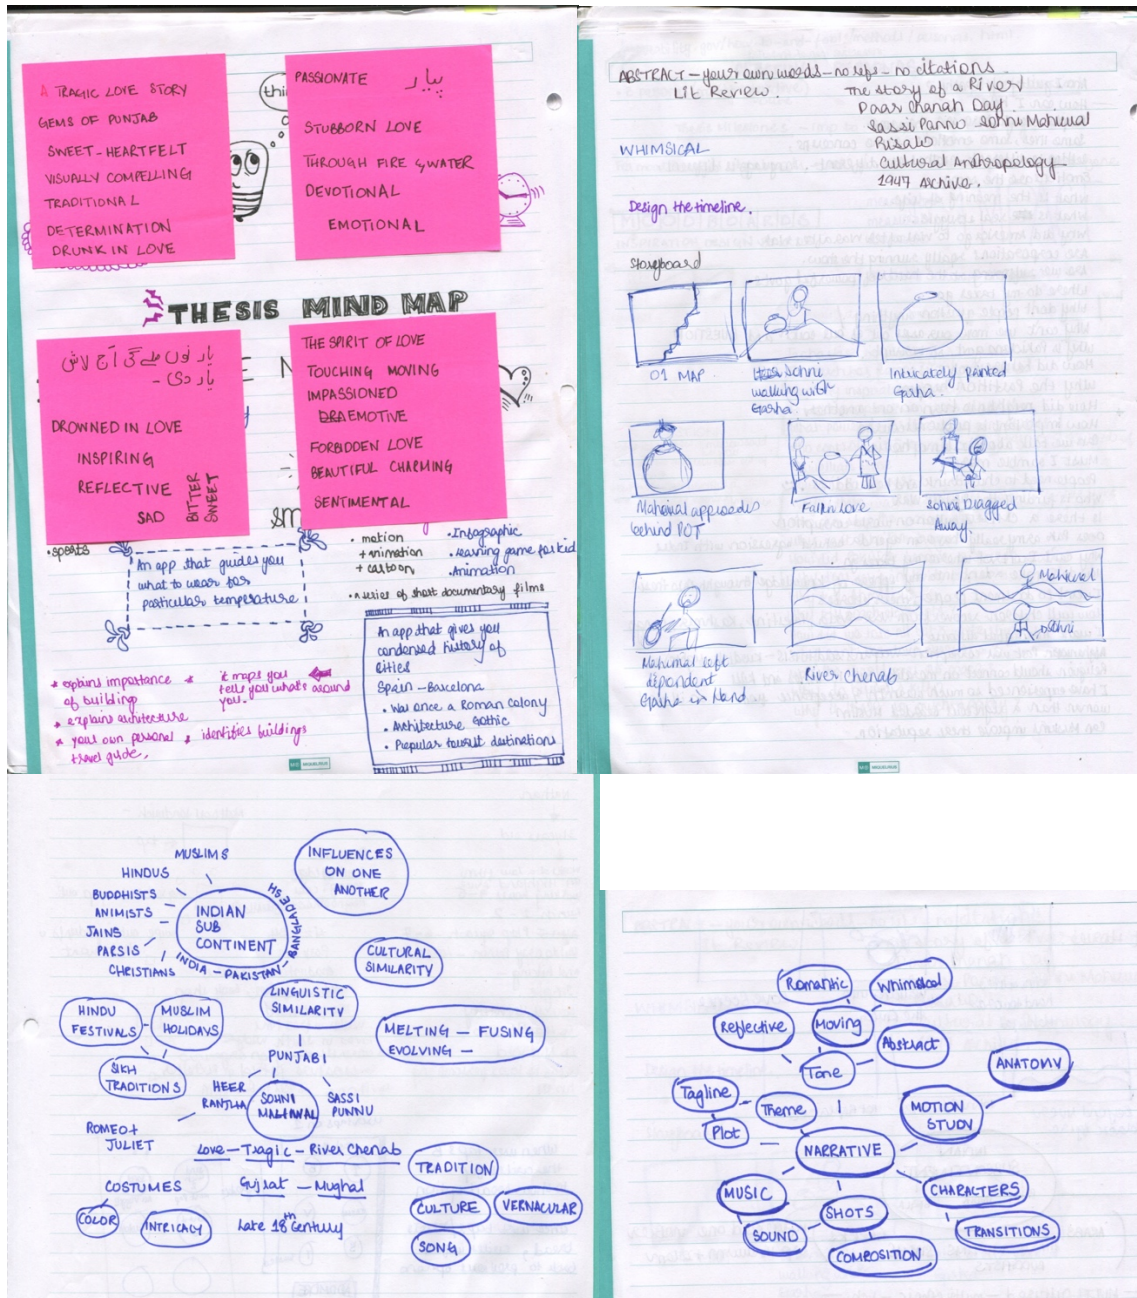 A TRAGIC LOVE STORY
GEMS OF PUNJAB
SWEET-HEARTFELT
VISUALLY COMPELLING
TRADITIONAL
DETERMINATION
DRUNK IN LOVE
thi
PASSIONATE پیار
STUBBORN LOVE
THROUGH FIRE & WATER
DEVOTIONAL
EMOTIONAL
THESIS MIND MAP
یار نوں ملے گی آج لاش
یار دی -
DROWNED IN LOVE
INSPIRING
REFLECTIVE
SAD
BITTER
SWEET
THE SPIRIT OF LOVE
TOUCHING MOVING
IMPASSIONED
EMOTIVE
FORBIDDEN LOVE
BEAUTIFUL CHARMING
SENTIMENTAL
sm
• sports
An app that guides you
what to wear for
particular temperature
• motion
+ animation
+ cartoon
• Infographic
• learning game for kid
• Animation
• a series of short documentary films
An app that gives you
condensed history of
cities
Spain – Barcelona
• was once a Roman colony
• Architecture Gothic
• Popular tourist destinations
* explains importance
of building
* explains architecture
* your own personal
travel guide.
* it maps you
tell you what's around
you.
* identifies buildings
ABSTRACT – your own words – no refs – no citations
Lit Review.
The story of a River
Paar Chanah Day.
Sassi Panno Sohni Mahiwal
Risalo
Cultural Anthropology
1947 Archive.
WHIMSICAL
Design the timeline.
Storyboard
01 MAP
Sohni
walking with
Garha.
Intricately painted
Garha.
Mahiwal approaches
behind POT
Fall in love
Sohni Dragged
Away
Mahiwal left
dependent
Garha in Hand
River Chenab
Mahiwal
Sohni
MUSLIMS
HINDUS
BUDDHISTS
ANIMISTS
JAINS
PARSIS
CHRISTIANS
INDIAN
SUB
CONTINENT
INDIA – PAKISTAN – BANGLADESH
INFLUENCES
ON ONE
ANOTHER
CULTURAL
SIMILARITY
LINGUISTIC
SIMILARITY
HINDU
FESTIVALS
MUSLIM
HOLIDAYS
SIKH
TRADITIONS
MELTING – FUSING
EVOLVING –
PUNJABI
HEER
RANJHA
SOHNI
MAHIWAL
SASSI
PUNNU
ROMEO +
JULIET
Love – Tragic – River Chenab
Gujrat – Mughal
Late 18th Century
COSTUMES
COLOR
INTRICACY
TRADITION
CULTURE
VERNACULAR
SONG
Romantic
Whimsical
Reflective
Moving
Abstract
Tone
ANATOMY
Tagline
Theme
Plot
MOTION
STUDY
NARRATIVE
MUSIC
SOUND
SHOTS
COMPOSITION
CHARACTERS
TRANSITIONS